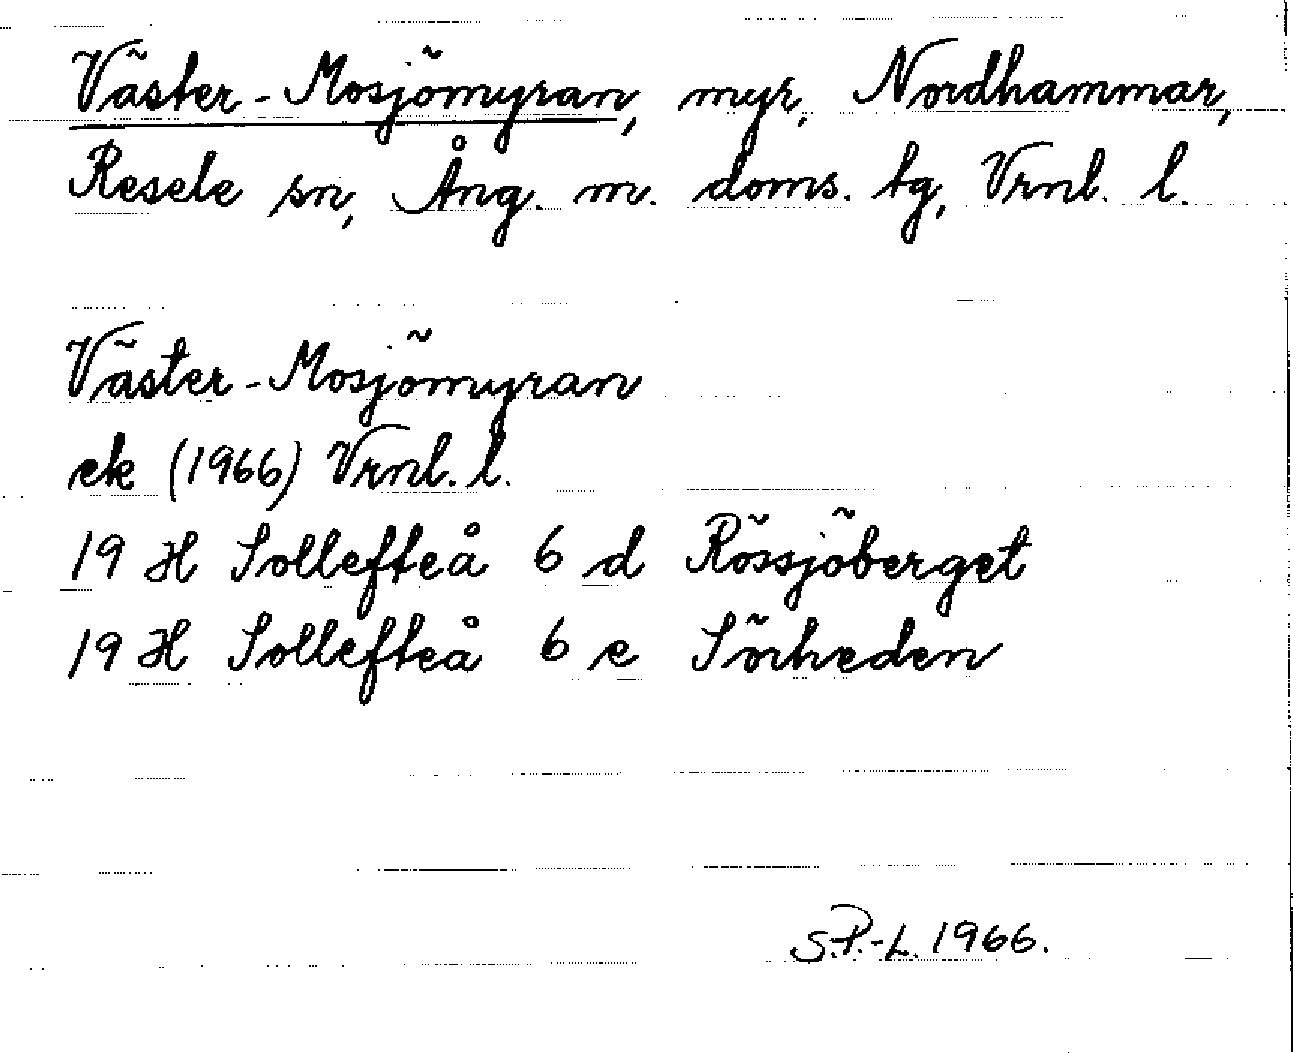 Väster-Mosjömyran, myr, Nordhammar,
Resele sn, Ång. m. doms. tg, Vrnl. l.
Väster-Mosjömyran
ek (1966) Vrnl. l.
19 H Sollefteå 6 d Rössjöberget
19 H Sollefteå 6 e Sörheden
S.P.-L. 1966.